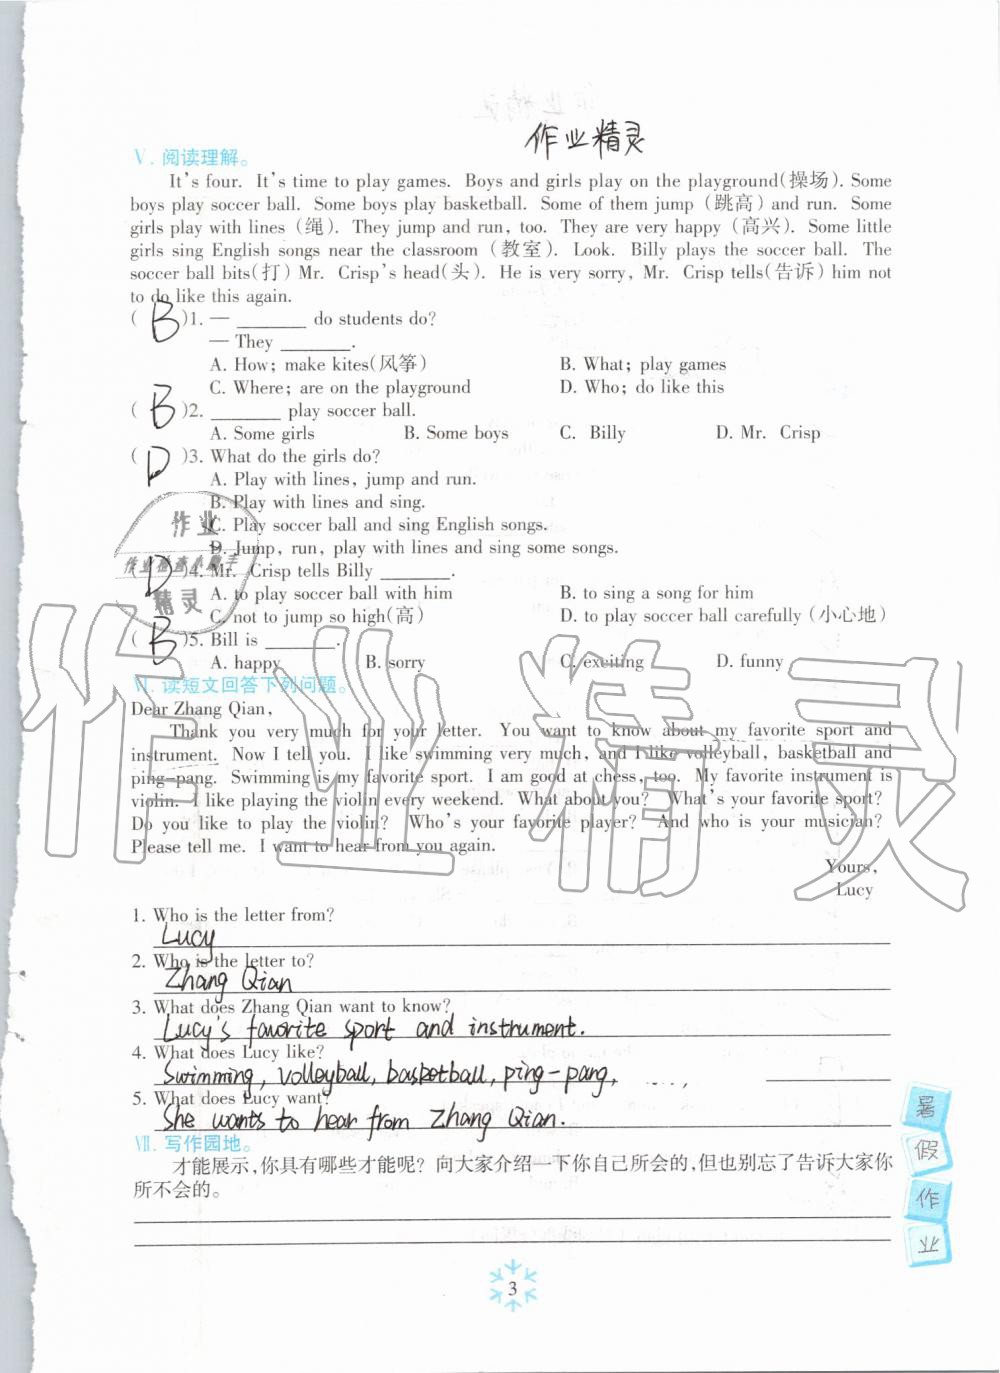 作业精灵
Ⅴ. 阅读理解。
It's four. It's time to play games. Boys and girls play on the playground(操场). Some
boys play soccer ball. Some boys play basketball. Some of them jump (跳高) and run. Some
girls play with lines (绳). They jump and run, too. They are very happy (高兴). Some little
girls sing English songs near the classroom (教室). Look. Billy plays the soccer ball. The
soccer ball bits(打) Mr. Crisp's head(头). He is very sorry, Mr. Crisp tells(告诉) him not
to do like this again.
( B )1. — ______ do students do?
— They ______.
A. How; make kites(风筝) B. What; play games
C. Where; are on the playground D. Who; do like this
( B )2. ______ play soccer ball.
A. Some girls B. Some boys C. Billy D. Mr. Crisp
( D )3. What do the girls do?
A. Play with lines, jump and run.
B. Play with lines and sing.
C. Play soccer ball and sing English songs.
D. Jump, run, play with lines and sing some songs.
( D )4. Mr. Crisp tells Billy ______.
A. to play soccer ball with him B. to sing a song for him
C. not to jump so high(高) D. to play soccer ball carefully (小心地)
( B )5. Bill is ______.
A. happy B. sorry C. exciting D. funny
作业
作业检查小助手
精灵
作业精灵
Ⅵ. 读短文回答下列问题。
Dear Zhang Qian,
Thank you very much for your letter. You want to know about my favorite sport and
instrument. Now I tell you. I like swimming very much, and I like volleyball, basketball and
ping-pang. Swimming is my favorite sport. I am good at chess, too. My favorite instrument is
violin. I like playing the violin every weekend. What about you? What's your favorite sport?
Do you like to play the violin? Who's your favorite player? And who is your musician?
Please tell me. I want to hear from you again.
Yours,
Lucy
1. Who is the letter from?
Lucy
2. Who is the letter to?
Zhang Qian
3. What does Zhang Qian want to know?
Lucy's favorite sport and instrument.
4. What does Lucy like?
Swimming, volleyball, basketball, ping-pang,
5. What does Lucy want?
She wants to hear from Zhang Qian.
Ⅶ. 写作园地。
才能展示,你具有哪些才能呢? 向大家介绍一下你自己所会的,但也别忘了告诉大家你
所不会的。
暑
假
作
业
3